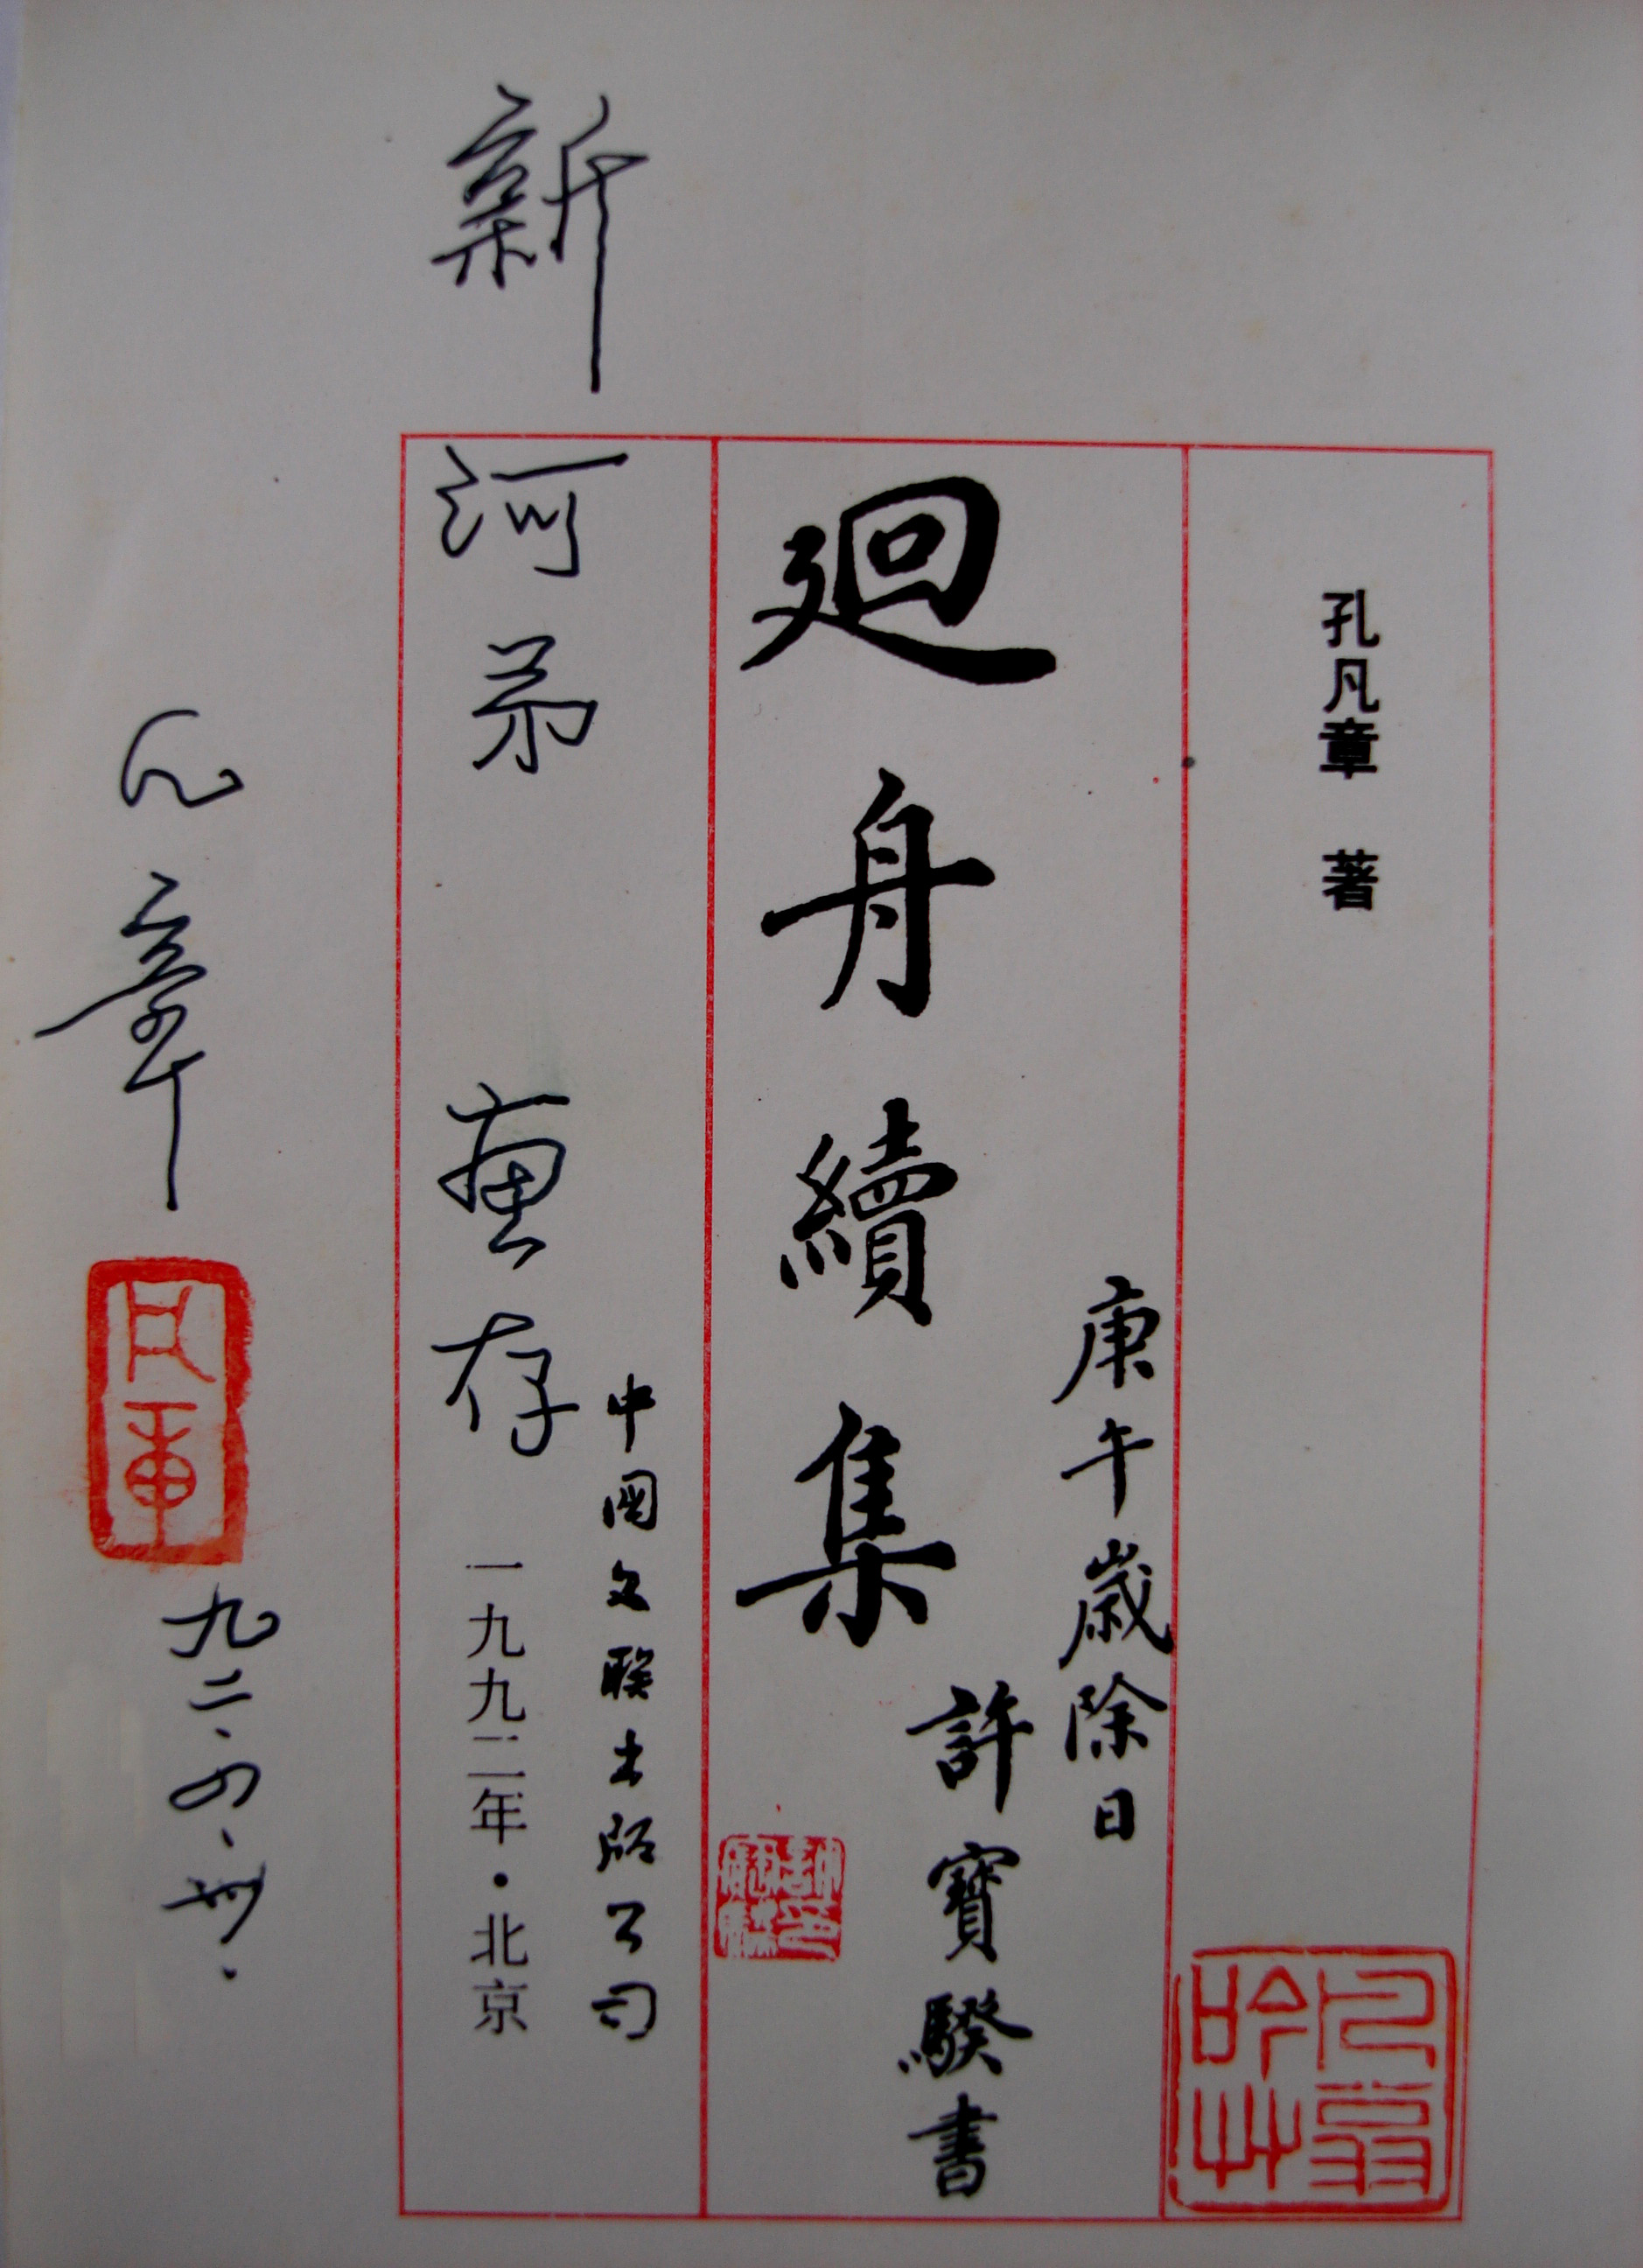 孔凡章 著
庚午歲除日
許寶騤書
廻舟續集
中國文联出版公司
一九九二年·北京
新河弟 惠存
凡章
凡章
九二.四.卅.